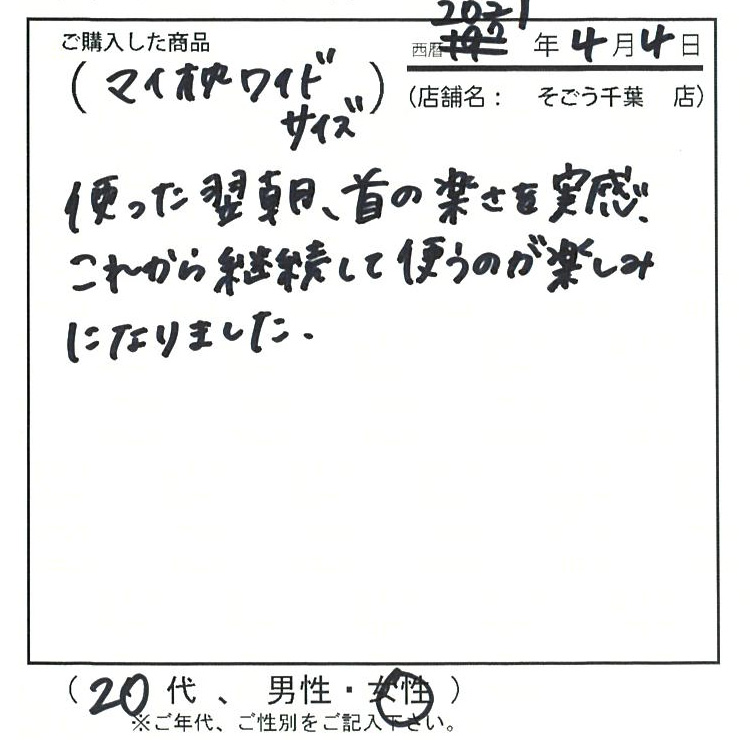 ご購入した商品
(マイ枕ワイド
サイズ)
2021
西暦 年4月4日
(店舗名： そごう千葉 店)
使った翌朝、首の楽さを実感、
これから継続して使うのが楽しみ
になりました.
(20代、男性・女性)
※ご年代、ご性別をご記入下さい。